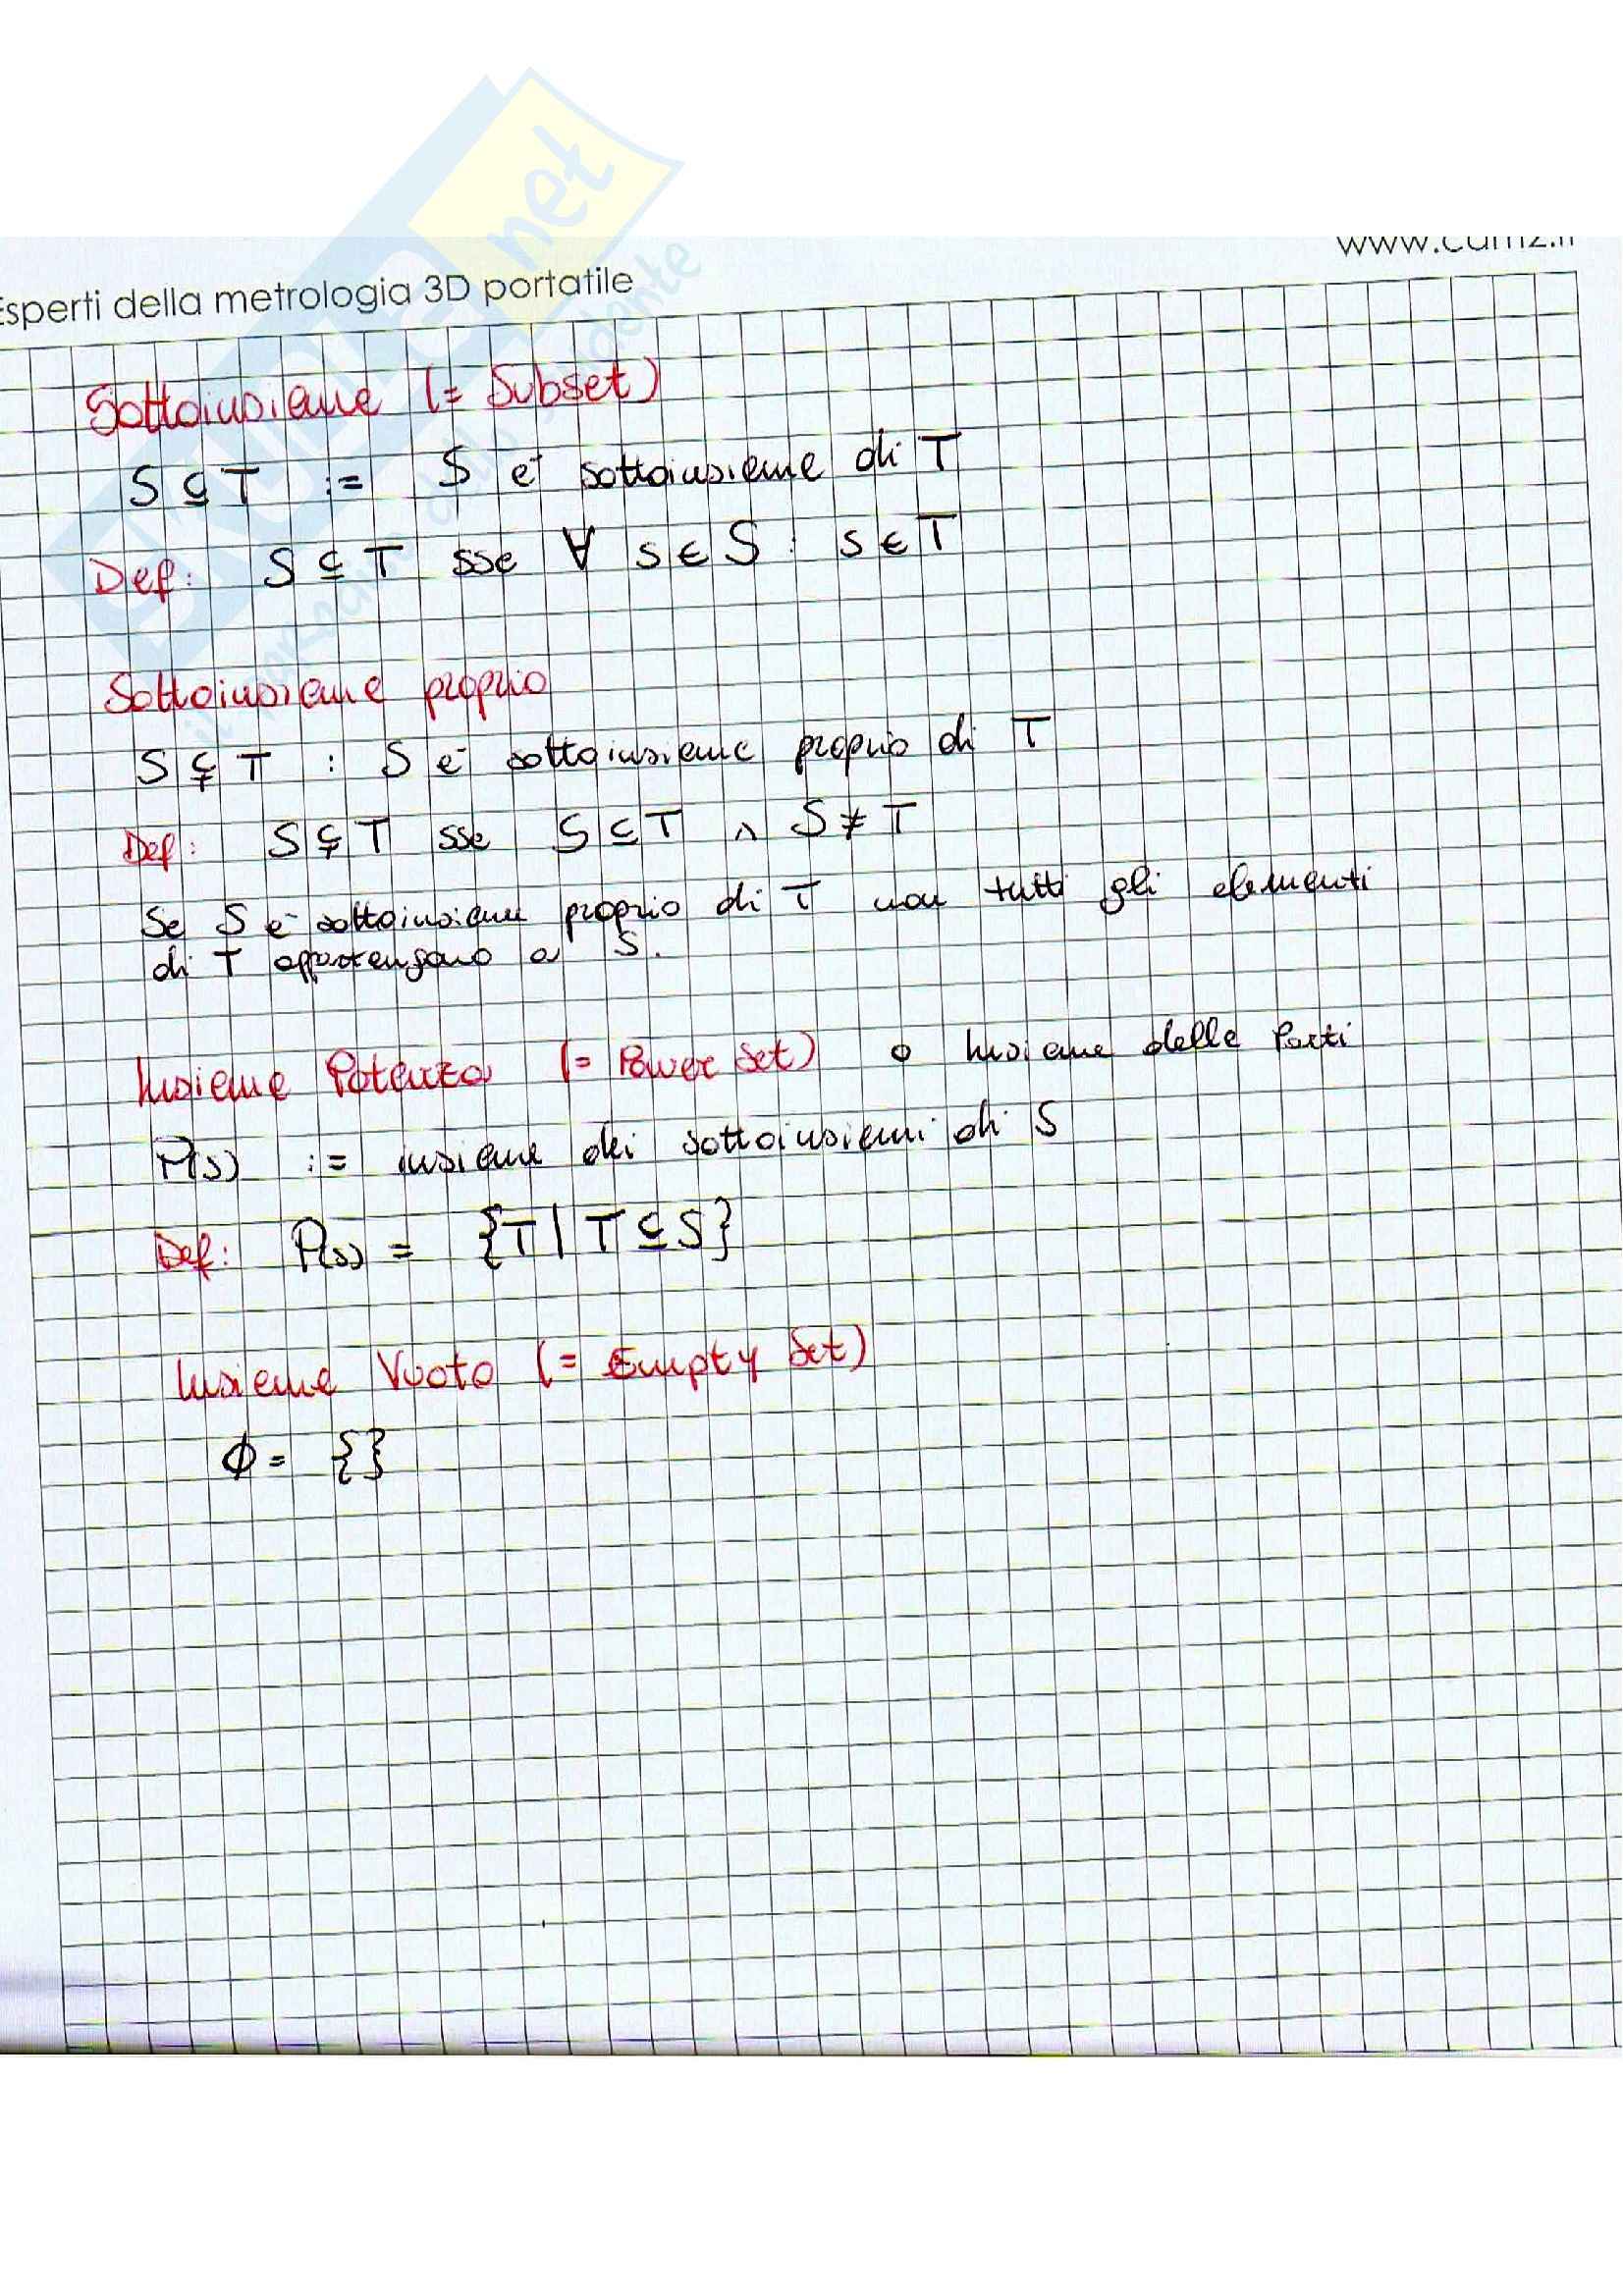 www.cam2.it
Esperti della metrologia 3D portatile
Sottoinsieme (= Subset)
S ⊆ T := S è sottoinsieme di T
Def: S ⊆ T sse ∀ s ∈ S : s ∈ T
Sottoinsieme proprio
S ⊊ T : S è sottoinsieme proprio di T
Def: S ⊊ T sse S ⊆ T ∧ S ≠ T
Se S è sottoinsieme proprio di T non tutti gli elementi
di T appartengono a S.
Insieme Potenza (= Power Set) o Insieme delle Parti
P(S) := insieme dei sottoinsiemi di S
Def: P(S) = {T | T ⊆ S}
Insieme Vuoto (= Empty Set)
ϕ = {}
net